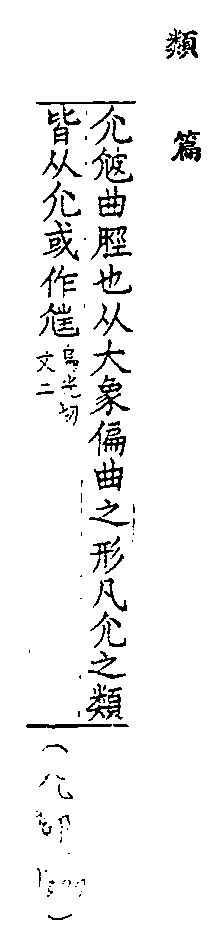 類篇
尣㝿曲脛也从大象偏曲之形凡尣之類
皆从尣或作尩烏光切
文二